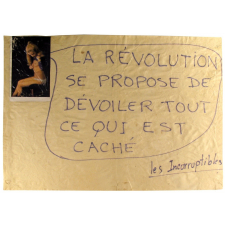 LA RÉVOLUTION
SE PROPOSE DE
DÉVOILER TOUT
CE QUI EST
CACHÉ
les Incorruptibles